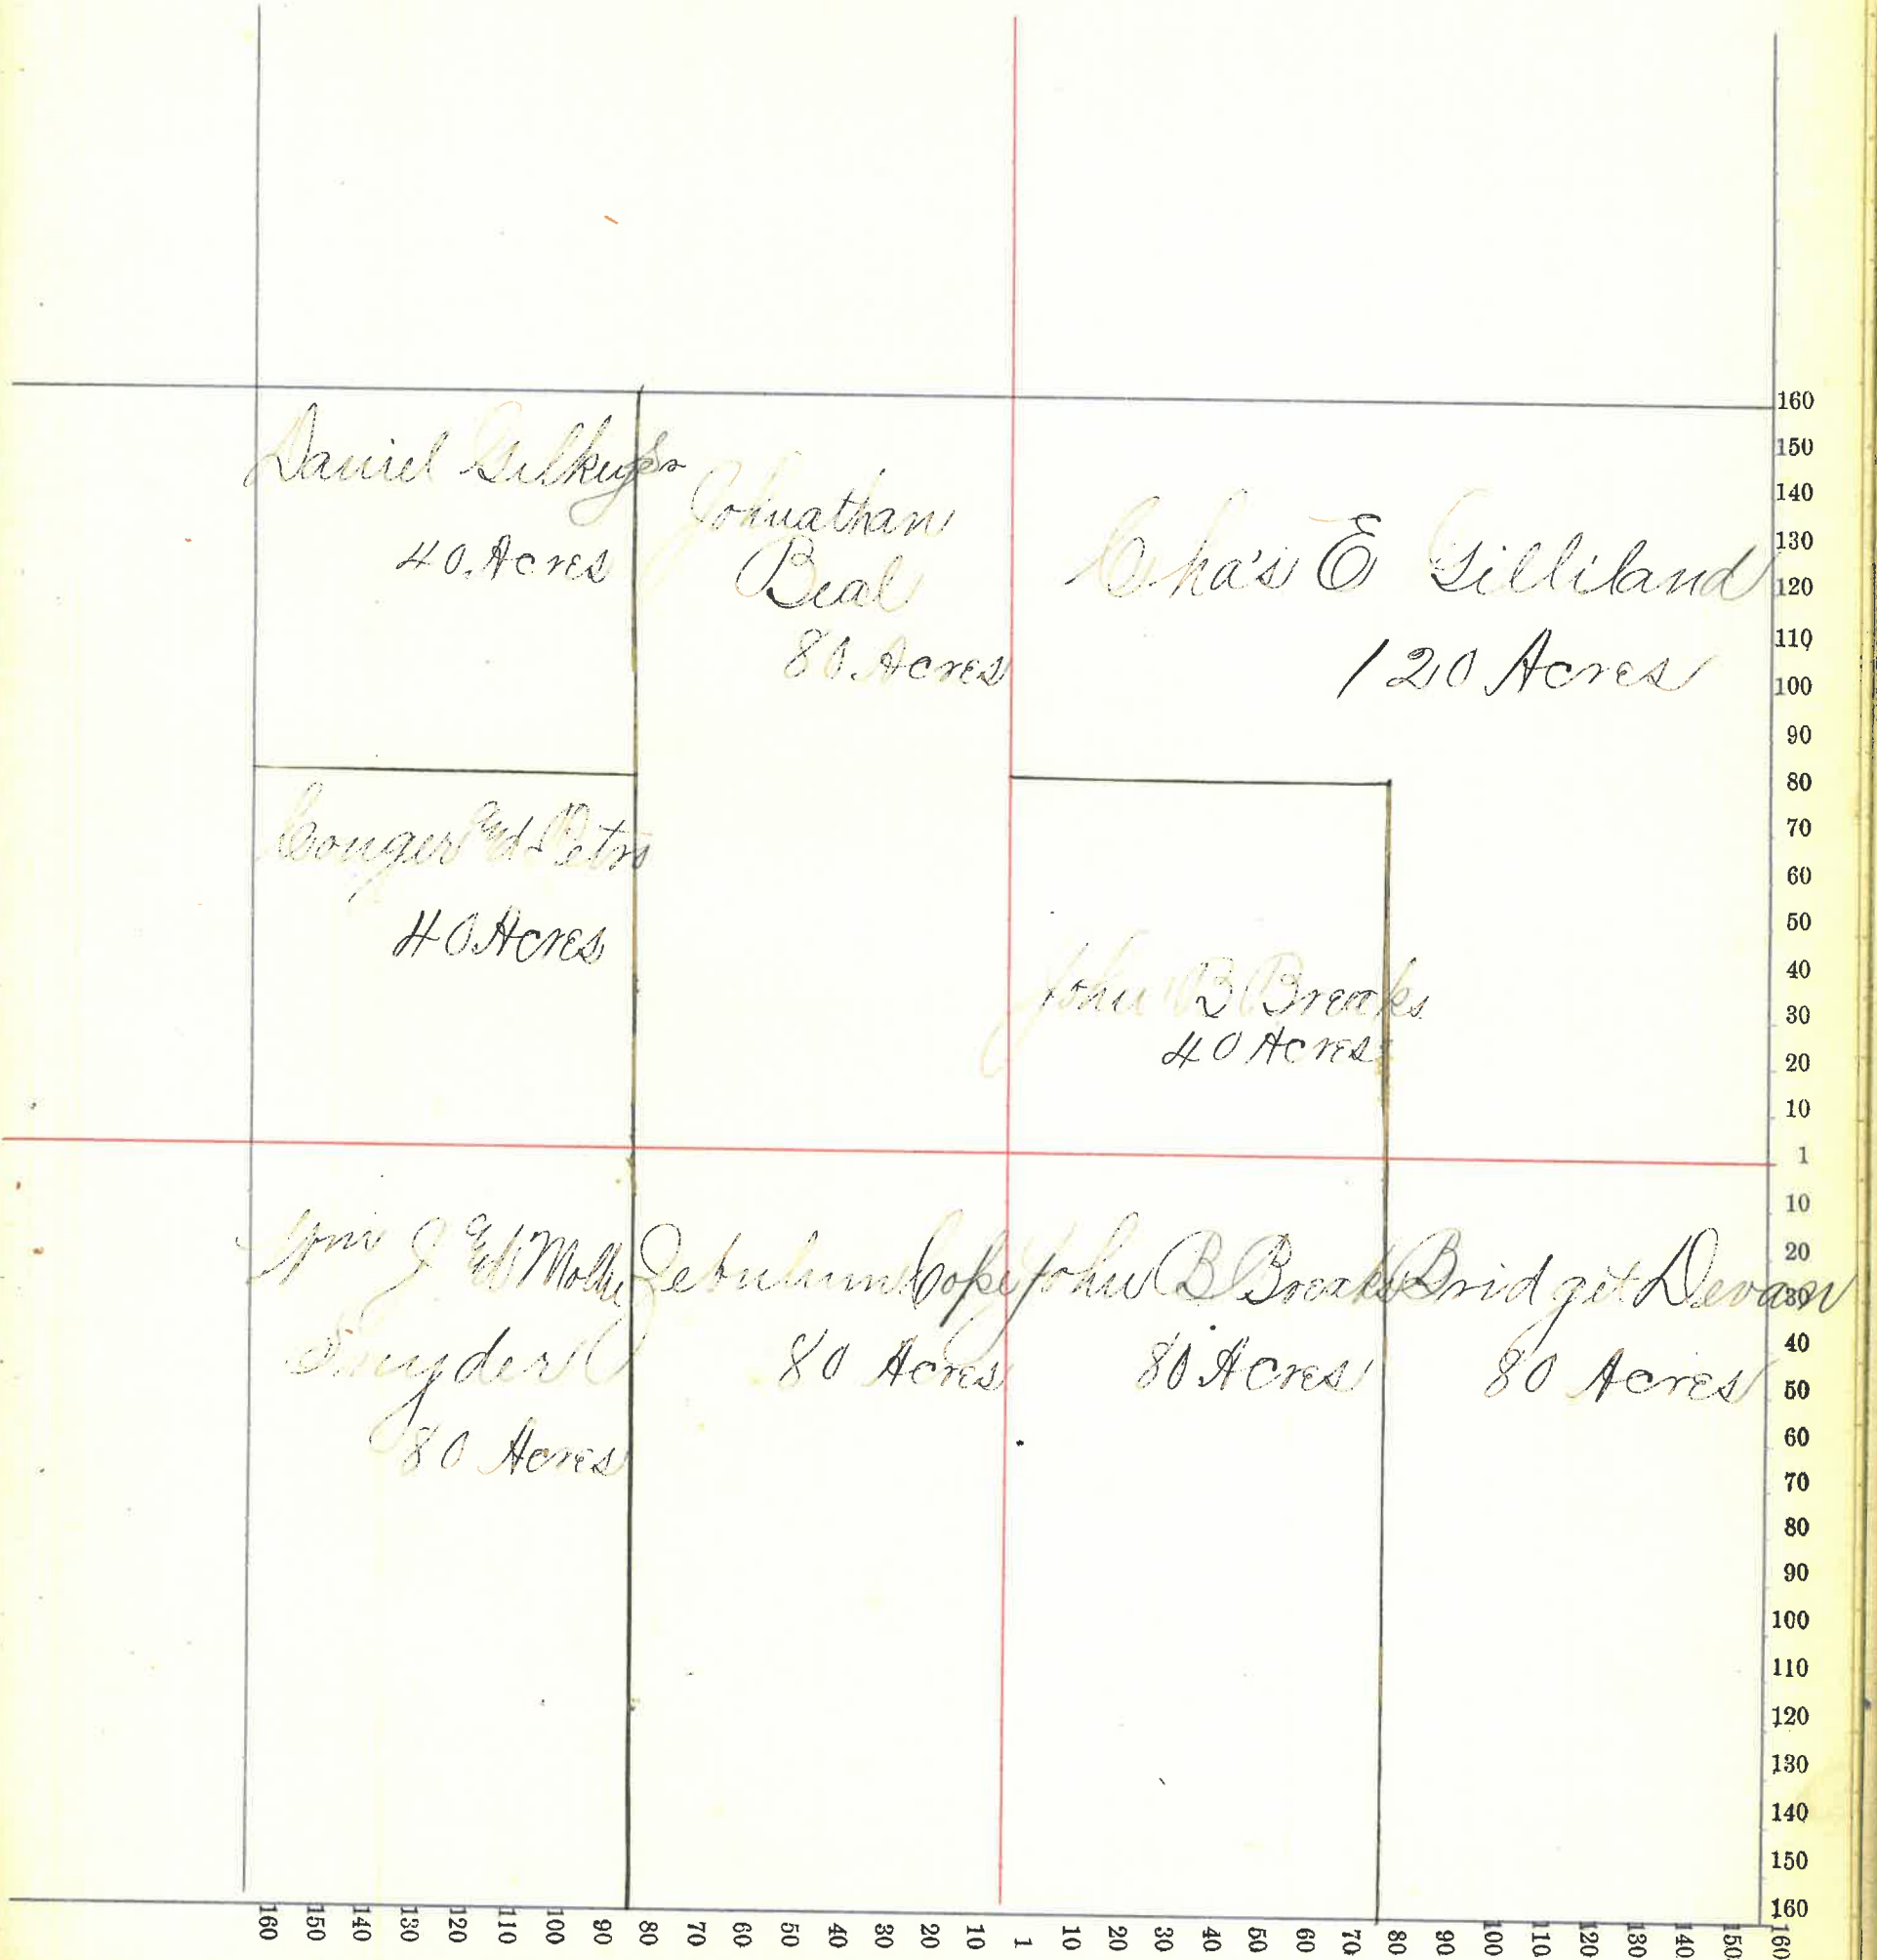 Daniel Gilkey Sr
40 Acres
Johnathan
Beal
80 Acres
Cha's E Gilliland
120 Acres
Conger and Petro
40 Acres
John B Breaks
40 Acres
Wm J and Mollie
Snyder
80 Acres
Zebulum Cope
80 Acres
John B Breaks
80 Acres
Bridget Devan
80 Acres
160
150
140
130
120
110
100
90
80
70
60
50
40
30
20
10
1
10
20
30
40
50
60
70
80
90
100
110
120
130
140
150
160
160 150 140 130 120 110 100 90 80 70 60 50 40 30 20 10 1 10 20 30 40 50 60 70 80 90 100 110 120 130 140 150 160